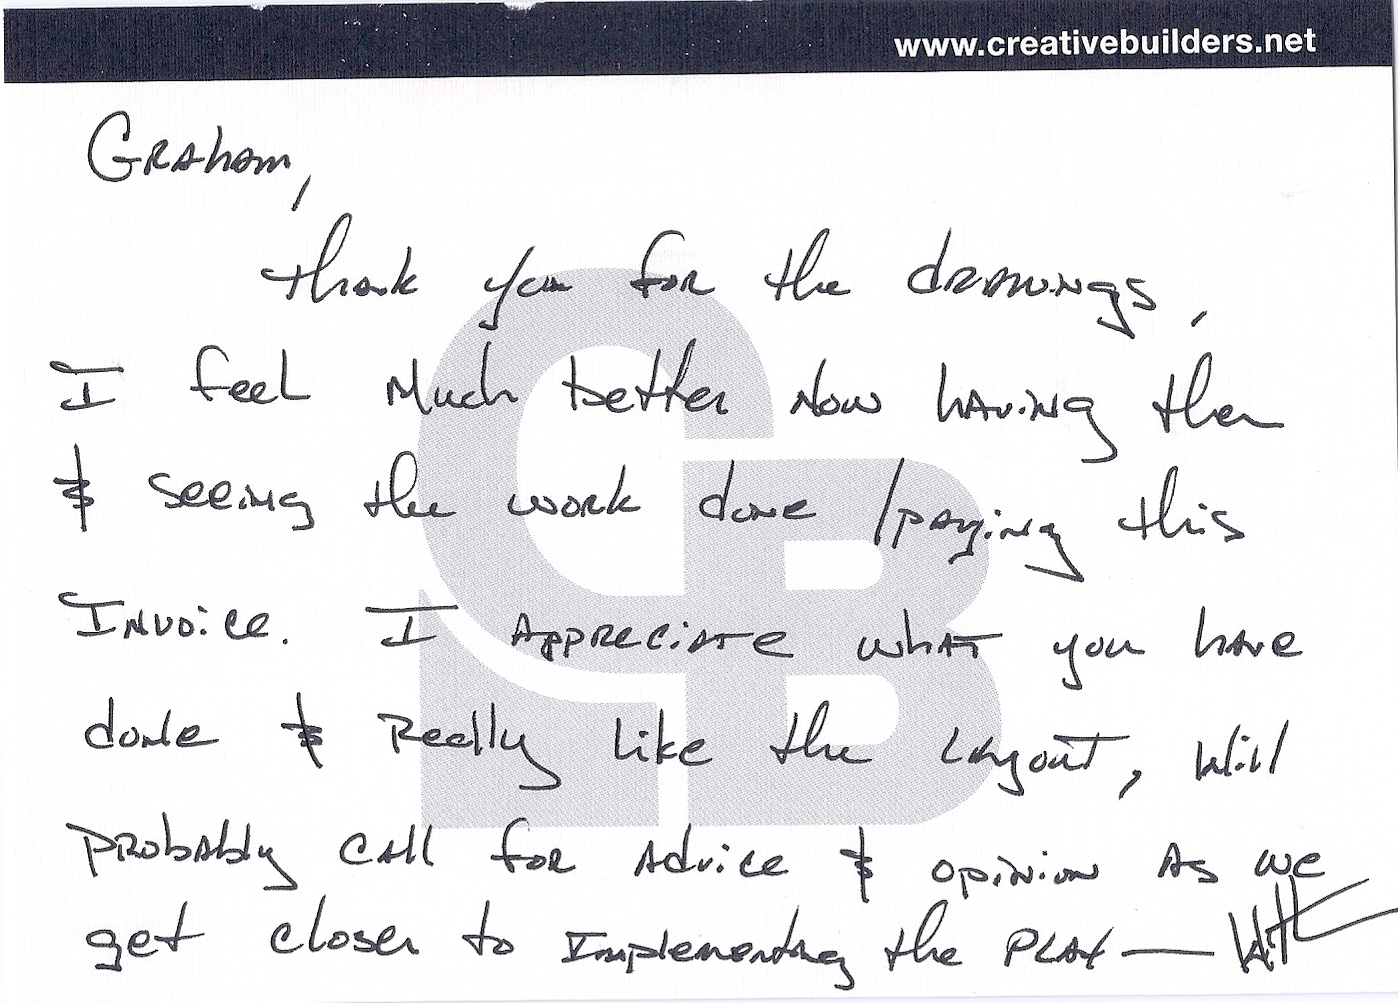 www.creativebuilders.net
Graham,
Thank you for the drawings,
I feel Much better Now having them
& seeing the work done / paying this
Invoice. I Appreciate what you have
done & Really like the Layout, Will
probably call for Advice & opinion As we
get closer to Implementing the PLAN —
CB